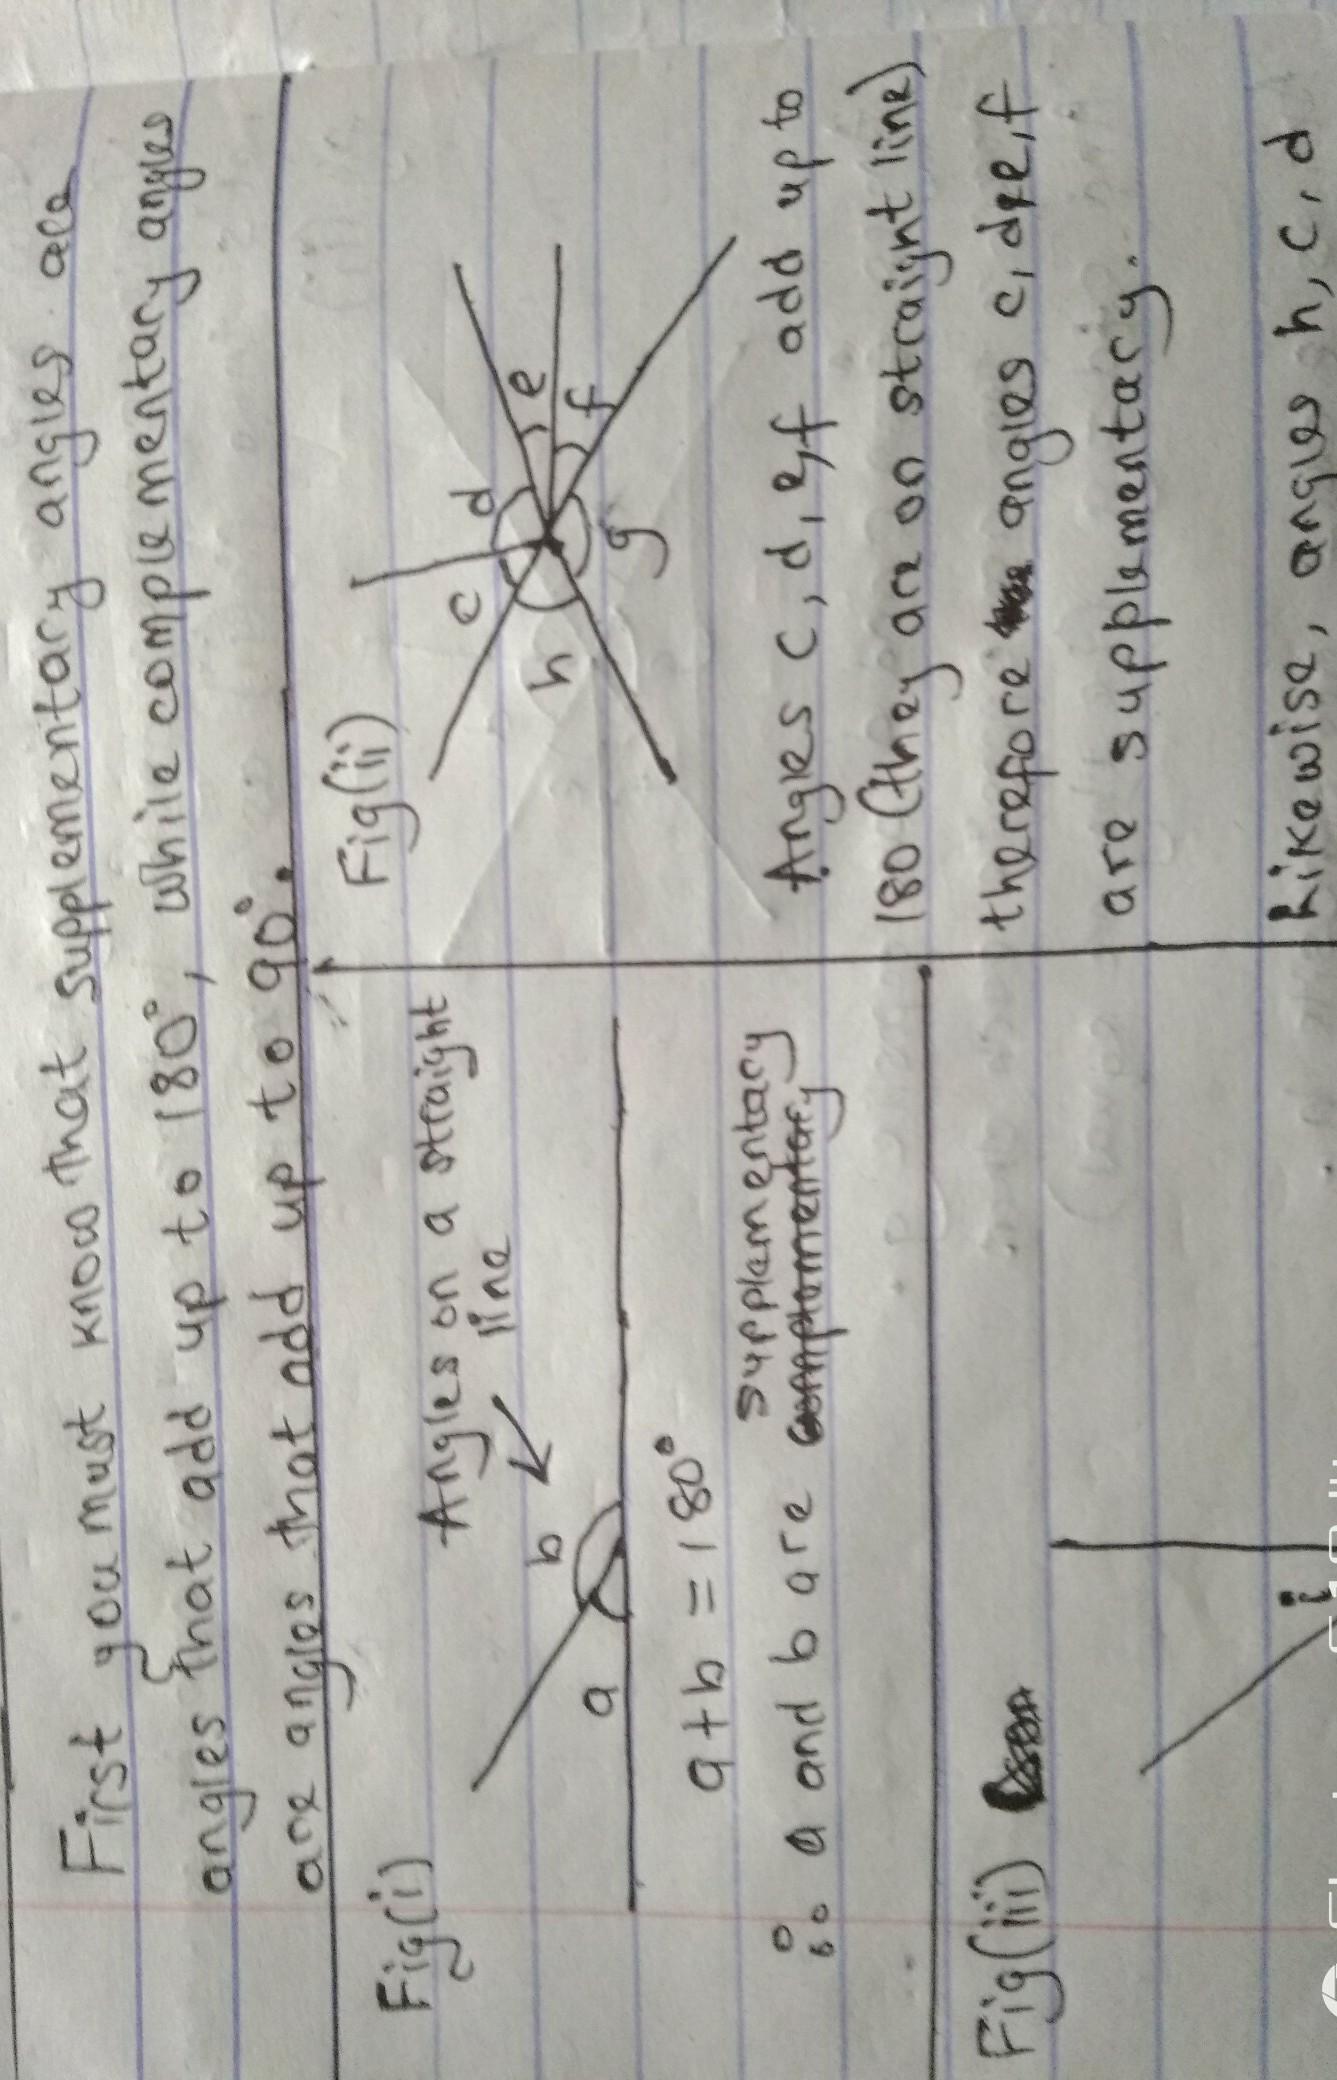 First you must know that supplementary angles are
angles that add up to 180°, while complementary angles
are angles that add up to 90°.
Fig(i)
Angles on a straight
line
a
b
a+b = 180°
supplementary
a and b are
Fig(ii)
c
d
e
f
g
h
Angles c, d, e, f add up to
180 (they are on straight line)
therefore angles c, d, e, f
are supplementary.
Likewise, angles h, c, d
Fig(iii)
i